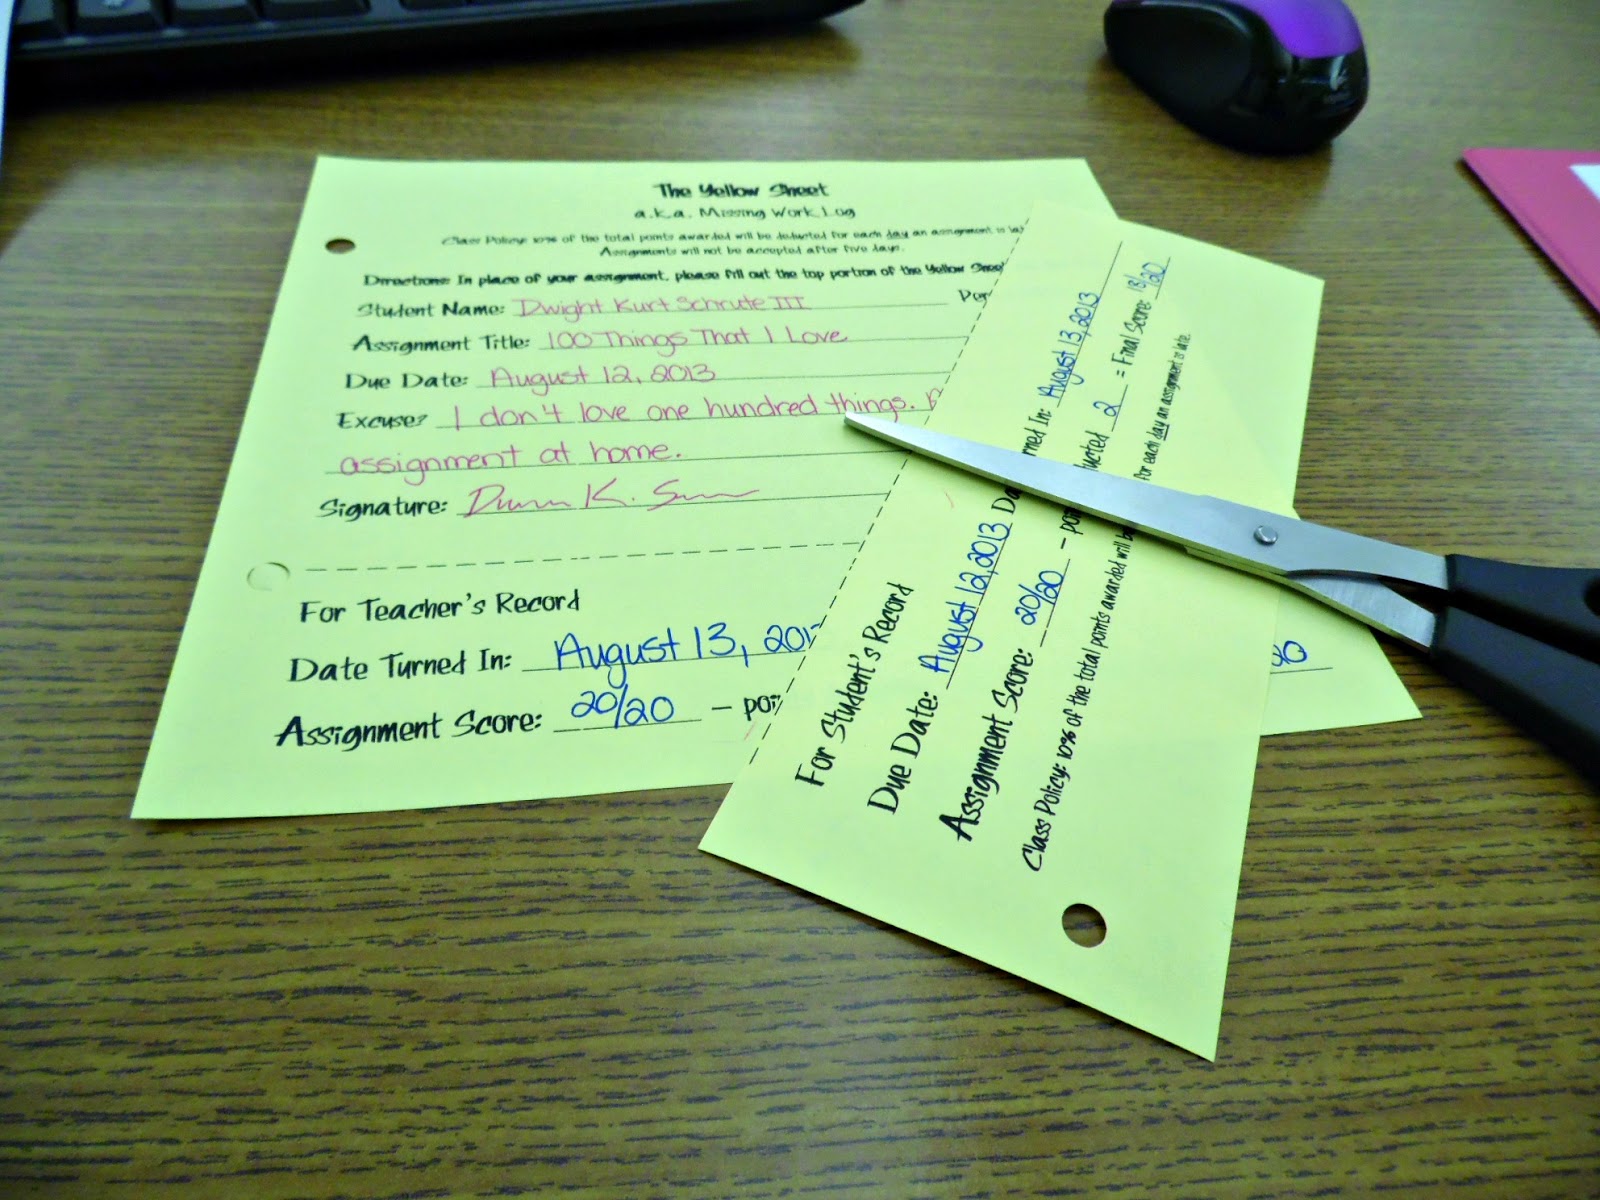 The Yellow Sheet
a.k.a. Missing Work Log
Class Policy: 10% of the total points awarded will be deducted for each day an assignment is
Assignments will not be accepted after five days.
Directions: In place of your assignment, please fill out the top portion of the Yellow Sheet
Student Name: Dwight Kurt Schrute III
Assignment Title: 100 Things That I Love
Due Date: August 12, 2013
Excuse? I don't love one hundred things.
assignment at home.
Signature:
For Teacher's Record
Date Turned In: August 13, 201
Assignment Score: 20/20 -
For Student's Record
Due Date: August 12, 2013 Da rned In: August 13, 2013
Assignment Score: 20/20 - poi ucted 2 = Final Score: 18/20
Class Policy: 10% of the total points awarded will be for each day an assignment is late.